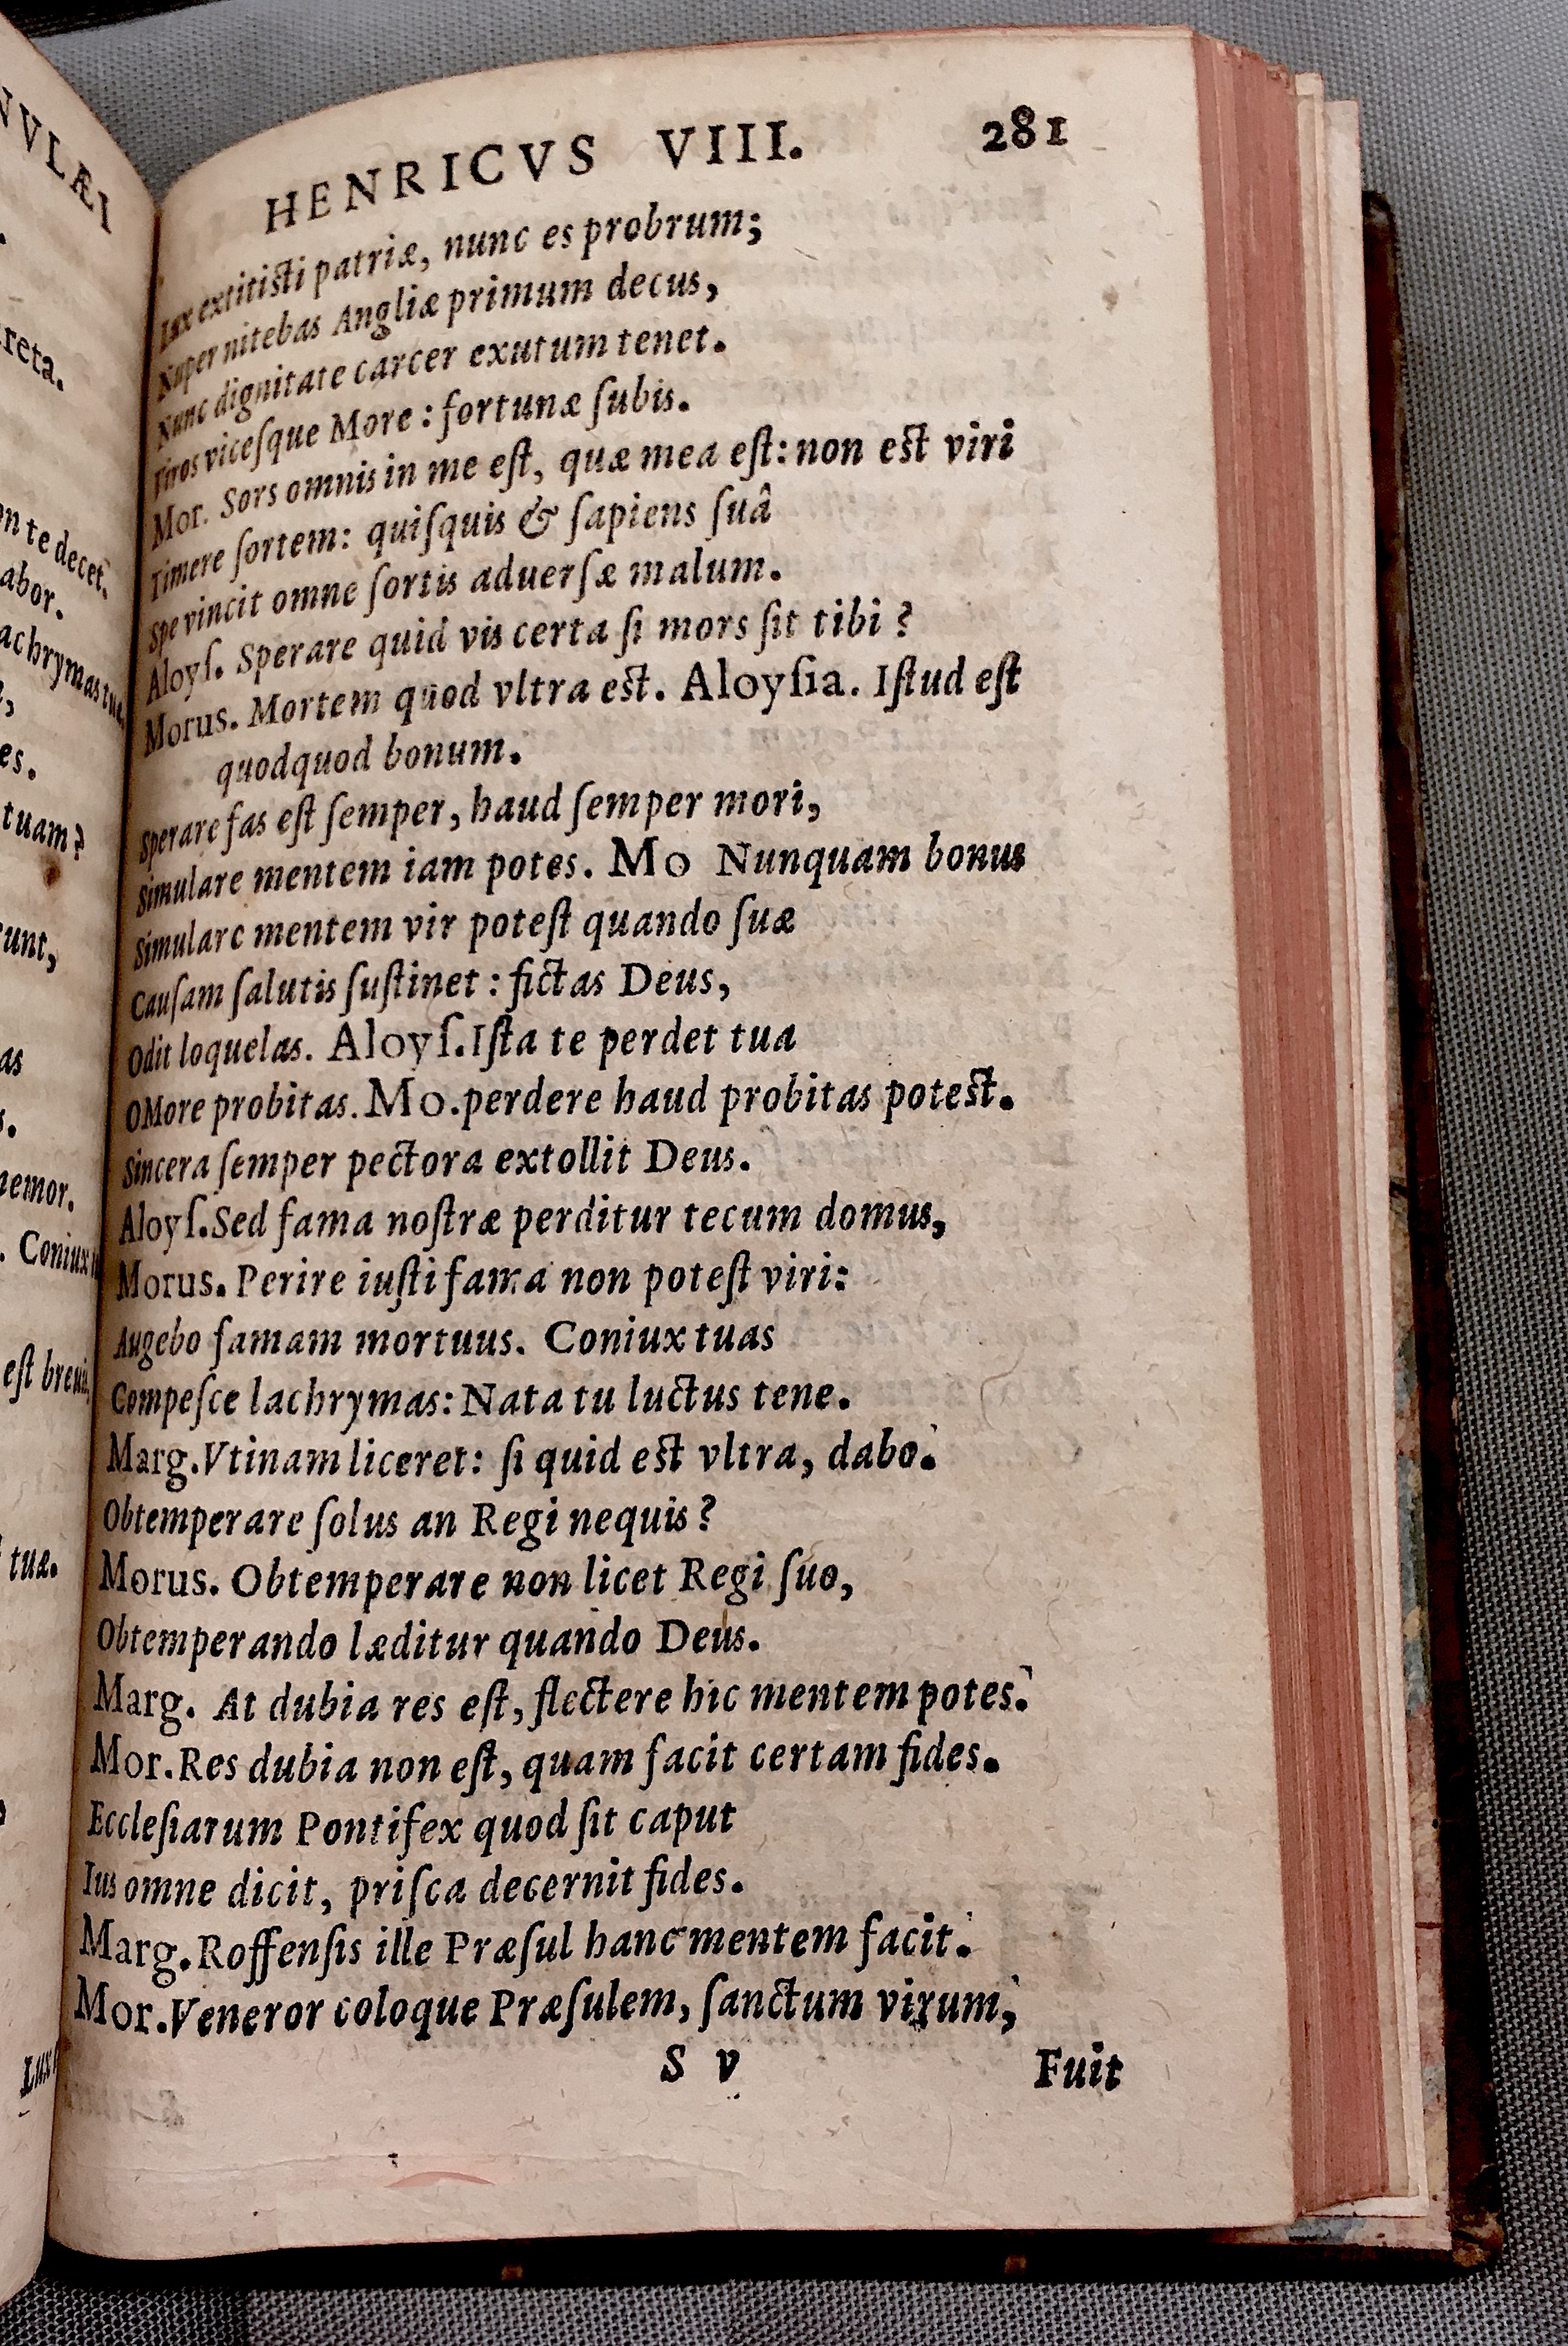 NVLÆI
reta.
on te decet.
abor.
achrymas tu
es.
tuam?
unt,
as
s.
nemor.
. Coniux
est breuis
tuæ.
Lux
HENRICVS VIII. 281
Lux extitisti patriæ, nunc es probrum;
Nuper nitebas Angliæ primum decus,
Nunc dignitate carcer exutum tenet.
vicesque More: fortunæ subis.
Mor. Sors omnis in me est, quæ mea est: non est viri
Timere sortem: quisquis & sapiens suâ
Spe vincit omne sortis aduersæ malum.
Aloys. Sperare quid vis certa si mors sit tibi?
Morus. Mortem quod vltra est. Aloysia. Istud est
quodquod bonum.
Sperare fas est semper, haud semper mori,
Simulare mentem iam potes. Mo Nunquam bonus
Simulare mentem vir potest quando suæ
Causam salutis sustinet: fictas Deus,
Odit loquelas. Aloys. Ista te perdet tua
O More probitas. Mo. perdere haud probitas potest.
Sincera semper pectora extollit Deus.
Aloys. Sed fama nostræ perditur tecum domus,
Morus. Perire iusti fama non potest viri:
Augebo famam mortuus. Coniux tuas
Compesce lachrymas: Nata tu luctus tene.
Marg. Vtinam liceret: si quid est vltra, dabo.
Obtemperare solus an Regi nequis?
Morus. Obtemperare non licet Regi suo,
Obtemperando læditur quando Deus.
Marg. At dubia res est, flectere hic mentem potes.
Mor. Res dubia non est, quam facit certam fides.
Ecclesiarum Pontifex quod sit caput
Ius omne dicit, prisca decernit fides.
Marg. Roffensis ille Præsul hanc mentem facit.
Mor. Veneror coloque Præsulem, sanctum virum,
S v Fuit